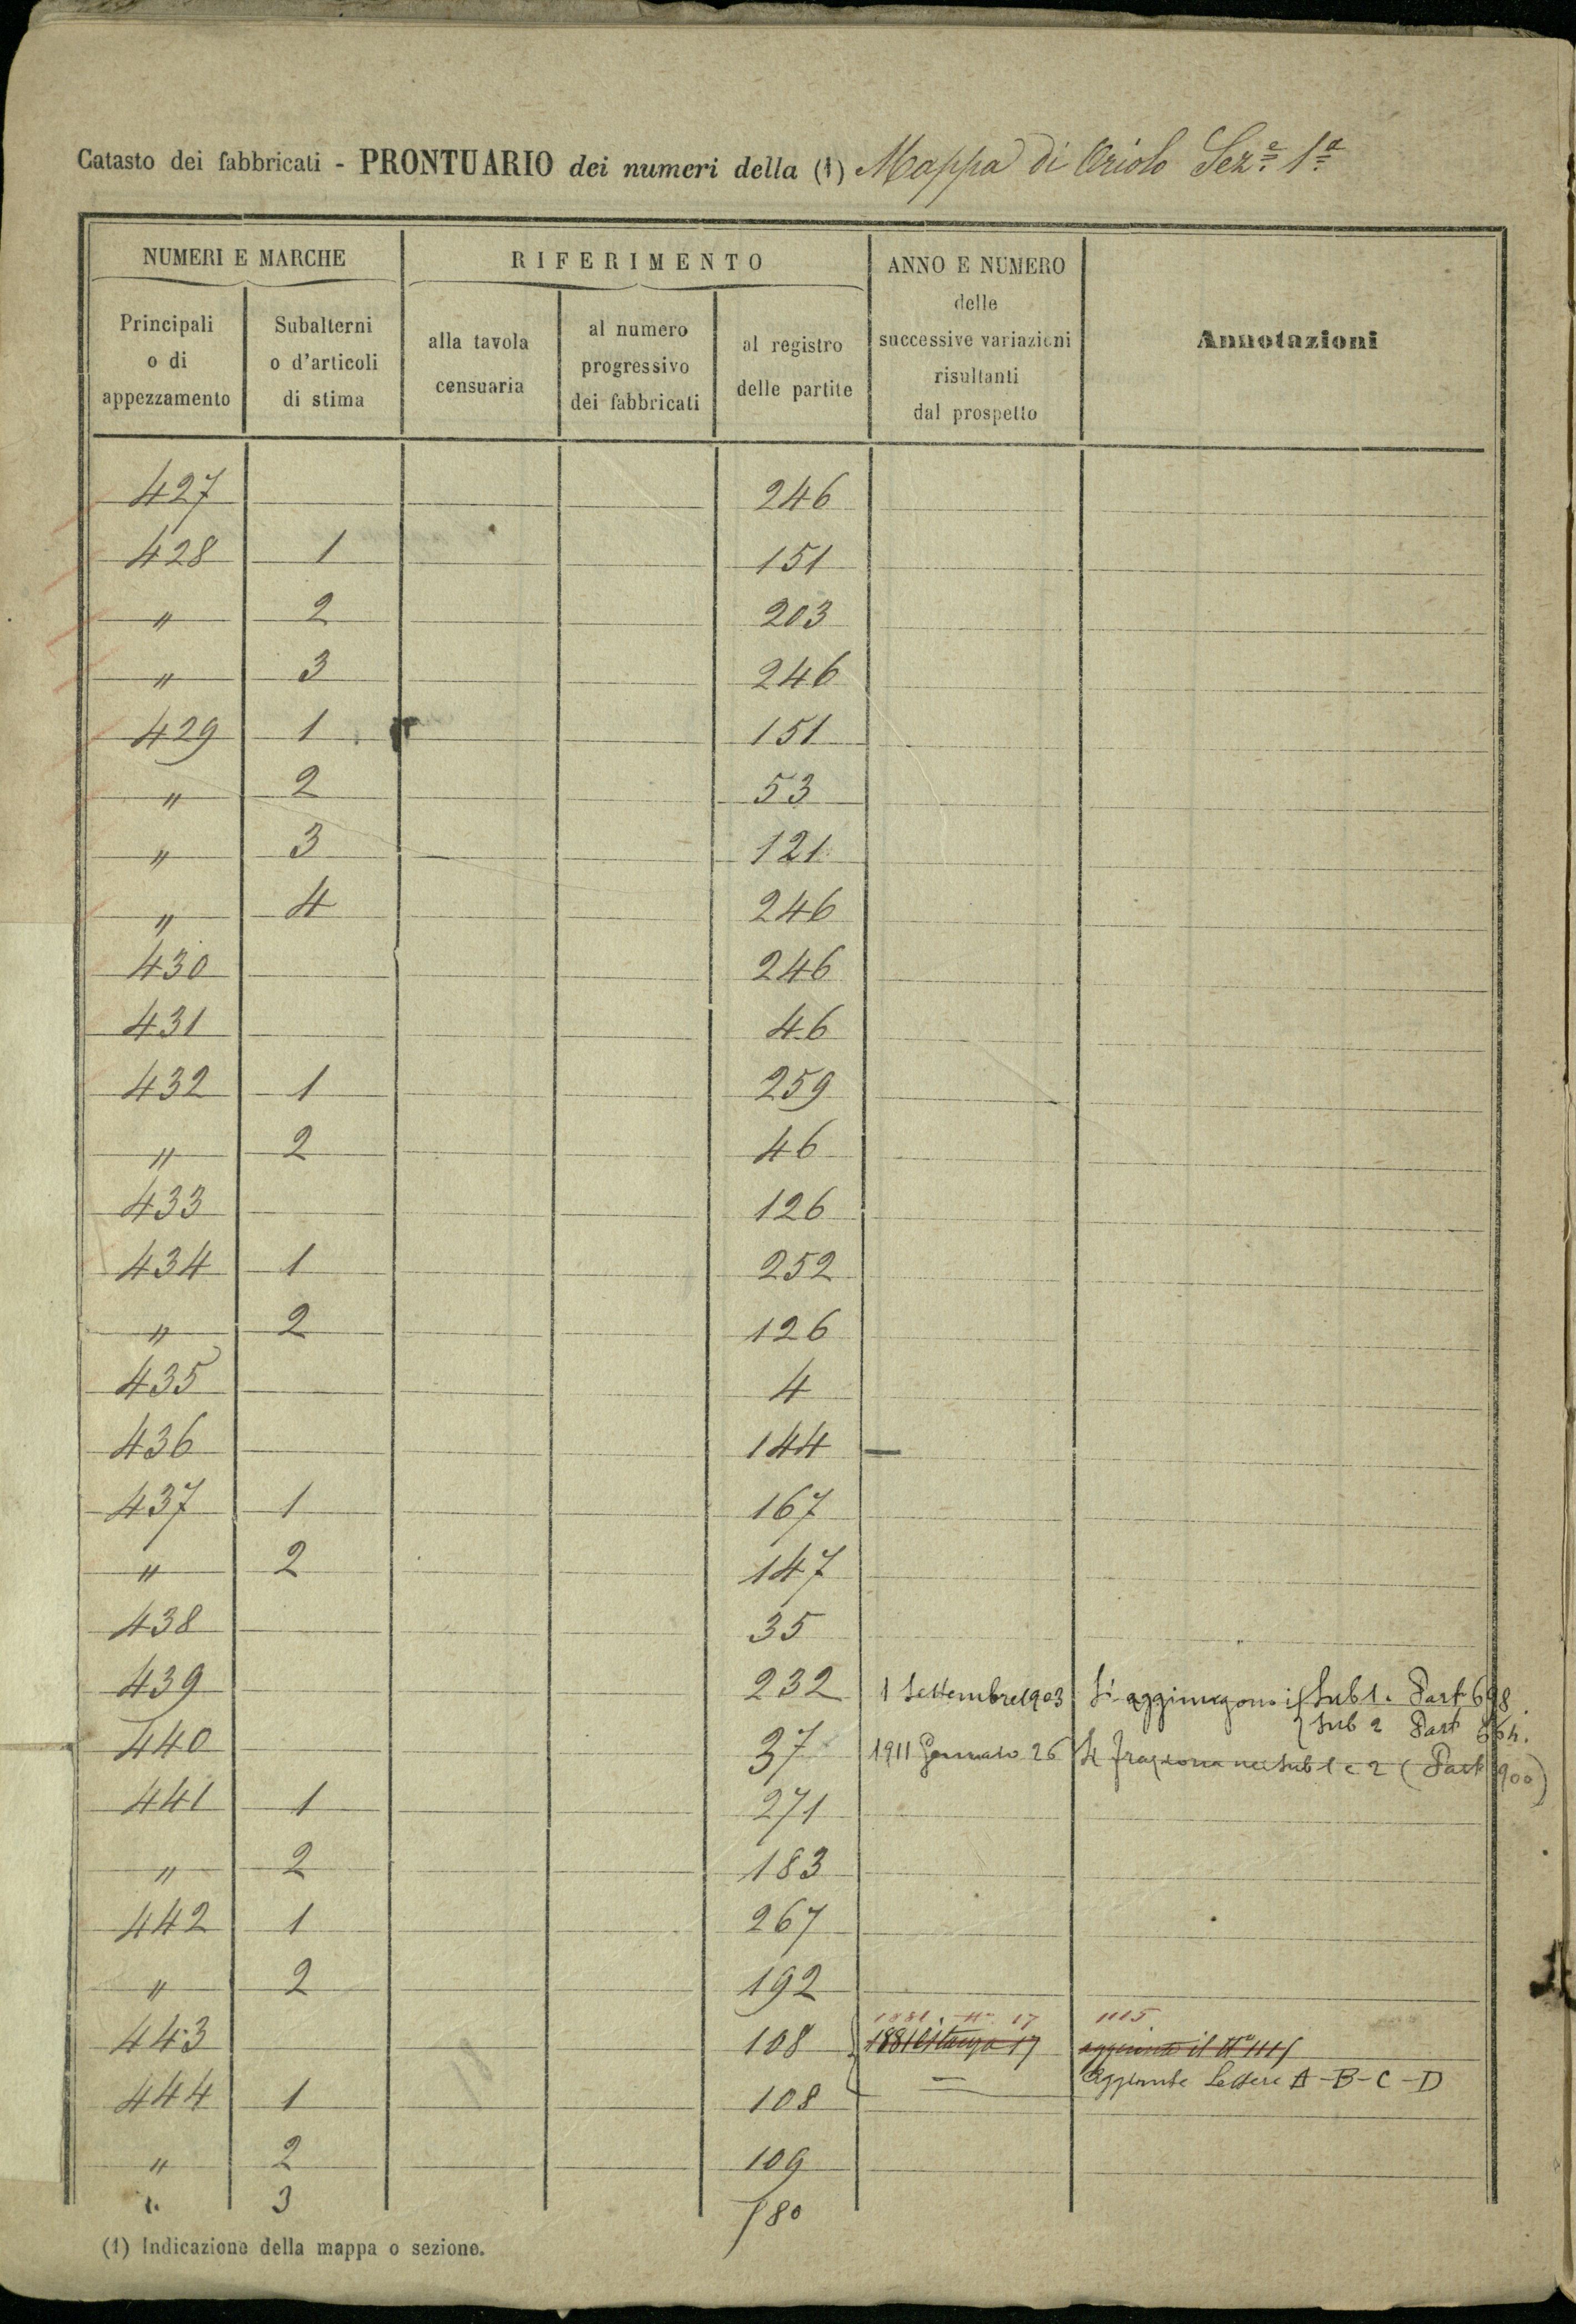 Catasto dei fabbricati - PRONTUARIO dei numeri della (1) Mappa di Oriolo Sez.ª 1.ª
NUMERI E MARCHE
RIFERIMENTO
ANNO E NUMERO
delle
successive variazioni
risultanti
dal prospetto
Annotazioni
Principali
o di
appezzamento
Subalterni
o d'articoli
di stima
alla tavola
censuaria
al numero
progressivo
dei fabbricati
al registro
delle partite
427 246
428 1 151
" 2 203
" 3 246
429 1 151
" 2 53
" 3 121
" 4 246
430 246
431 46
432 1 259
" 2 46
433 126
434 1 252
" 2 126
435 4
436 144 —
437 1 167
" 2 147
438 35
439 232 1 Settembre 1903 Si aggiungono i { Sub 1. Part 698
{ Sub 2 Part
440 37 1911 Gennaio 26 Si fraziona nei Sub 1 e 2 (Part 900)
441 1 271
" 2 183
442 1 267
" 2 192
1881. N. 17 1115.
443 108 1881 17 aggiunto il N° 1115
444 1 108 = Aggiunte Lettere A-B-C-D
" 2 109
" 3 180
(1) Indicazione della mappa o sezione.